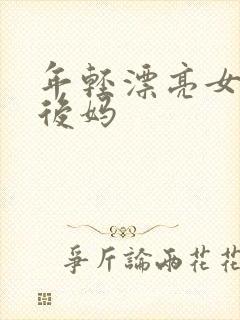 年輕漂亮女
後妈
爭斤論兩花花